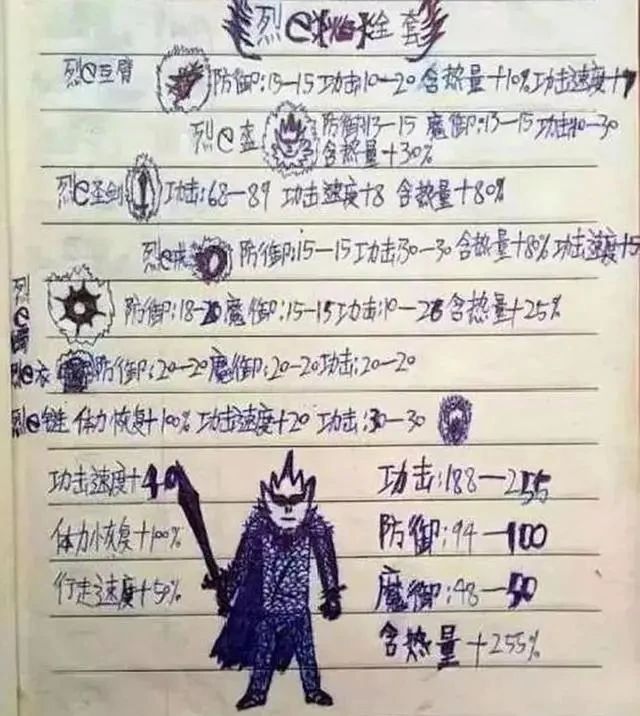 烈e火焰全套
烈e巨臂 防御:15-15 功击10-20 含热量+10% 功击速度+
烈e盔 防御:13-15 魔御:13-15 功击10-30
含热量+30%
烈e圣剑 功击:68-89 功击速度+8 含热量+80%
烈e戒 防御:15-15 功击30-30 含热量+80% 功击速度+5
烈e 防御:18-20 魔御:15-15 功击:10-20 含热量+25%
烈e衣 防御:20-20 魔御:20-20 功击:20-20
烈e链 体力恢复+100% 功击速度+20 功击:30-30
功击速度+40 功击:188-255
体力恢复+100% 防御:94-100
行走速度+50% 魔御:48-50
含热量+255%